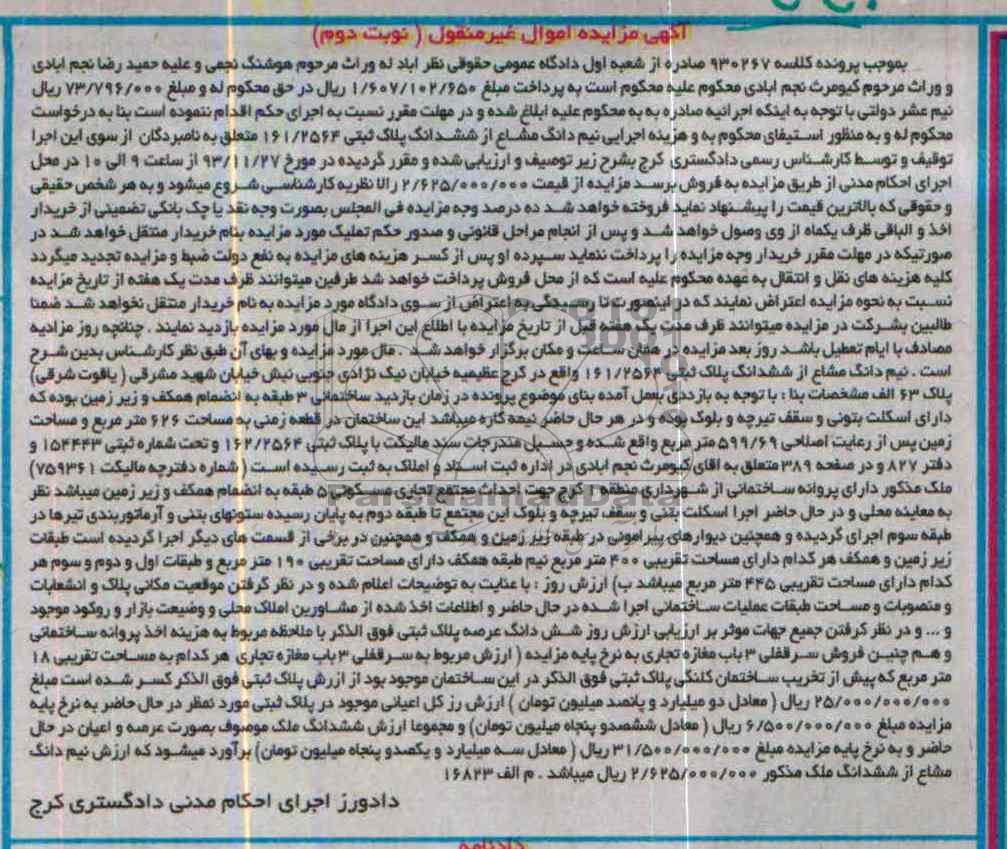 آگهی مزایده اموال غیرمنقول ( نوبت دوم)
بموجب پرونده کلاسه ۹۳۰۲۶۷ صادره از شعبه اول دادگاه عمومی حقوقی نظر اباد له وراث مرحوم هوشنگ نجمی و علیه حمید رضا نجم ابادی
و وراث مرحوم کیومرث نجم ابادی محکوم علیه محکوم است به پرداخت مبلغ ۱/۶۰۷/۱۰۲/۶۵۰ ریال در حق محکوم له و مبلغ ۷۳/۷۹۶/۰۰۰ ریال
نیم عشر دولتی با توجه به اینکه اجرائیه صادره به به محکوم علیه ابلاغ شده و در مهلت مقرر نسبت به اجرای حکم اقدام ننموده است بنا به درخواست
محکوم له و به منظور استیفای محکوم به و هزینه اجرایی نیم دانگ مشاع از ششدانگ پلاک ثبتی ۱۶۱/۲۵۶۴ متعلق به نامبردگان از سوی این اجرا
توقیف و توسط کارشناس رسمی دادگستری کرج بشرح زیر توصیف و ارزیابی شده و مقرر گردیده در مورخ ۹۳/۱۱/۲۷ از ساعت ۹ الی ۱۰ در محل
اجرای احکام مدنی از طریق مزایده به فروش برسد مزایده از قیمت ۲/۶۲۵/۰۰۰/۰۰۰ رالا نظریه کارشناسی شروع میشود و به هر شخص حقیقی
و حقوقی که بالاترین قیمت را پیشنهاد نماید فروخته خواهد شد ده درصد وجه مزایده فی المجلس بصورت وجه نقد یا چک بانکی تضمینی از خریدار
اخذ و الباقی ظرف یکماه از وی وصول خواهد شد و پس از انجام مراحل قانونی و صدور حکم تملیک مورد مزایده بنام خریدار منتقل خواهد شد در
صورتیکه در مهلت مقرر خریدار وجه مزایده را پرداخت ننماید سپرده او پس از کسر هزینه های مزایده به نفع دولت ضبط و مزایده تجدید میگردد
کلیه هزینه های نقل و انتقال به عهده محکوم علیه است که از محل فروش پرداخت خواهد شد طرفین میتوانند ظرف مدت یک هفته از تاریخ مزایده
نسبت به نحوه مزایده اعتراض نمایند که در اینصورت تا رسیدگی به اعتراض از سوی دادگاه مورد مزایده به نام خریدار منتقل نخواهد شد ضمنا
طالبین بشرکت در مزایده میتوانند ظرف مدت یک هفته قبل از تاریخ مزایده با اطلاع این اجرا از مال مورد مزایده بازدید نمایند . چنانچه روز مزادیه
مصادف با ایام تعطیل باشد روز بعد مزایده در همان ساعت و مکان برگزار خواهد شد . مال مورد مزایده و بهای آن طبق نظر کارشناس بدین شرح
است . نیم دانگ مشاع از ششدانگ پلاک ثبتی ۱۶۱/۲۵۶۴ واقع در کرج عظیمیه خیابان نیک نژادی جنوبی نبش خیابان شهید مشرقی ( یاقوت شرقی)
پلاک ۶۳ الف مشخصات بنا : با توجه به بازدید بعمل آمده بنای موضوع پرونده در زمان بازدید ساختمانی ۳ طبقه به انضمام همکف و زیر زمین بوده که
دارای اسکلت بتونی و سقف تیرچه و بلوک بوده و در هر حال حاضر نیمه کاره میباشد این ساختمان در قطعه زمنی به مساحت ۶۲۶ متر مربع و مساحت
زمین پس از رعایت اصلاحی ۵۹۹/۶۹ متر مربع واقع شده و حسب مندرجات سند مالیکت با پلاک ثبتی ۱۶۲/۲۵۶۴ و تحت شماره ثبتی ۱۵۴۴۴۳ و
دفتر ۸۲۷ و در صفحه ۳۸۹ متعلق به اقای کیومرث نجم ابادی در اداره ثبت اسناد و املاک به ثبت رسیده است ( شماره دفترچه مالیکت ۷۵۹۳۶۱)
ملک مذکور دارای پروانه ساختمانی از شهرداری منطقه کرج جهت احداث مجتمع تجاری مسکونی ۵ طبقه به انضمام همکف و زیر زمین میباشد نظر
به معاینه محلی و در حال حاضر اجرا اسکلت بتنی و سقف تیرچه و بلوک این مجتمع تا طبقه دوم به پایان رسیده ستونهای بتنی و آرماتوربندی تیرها در
طبقه سوم اجرای گردیده و همچنین دیوارهای پیرامونی در طبقه زیر زمین و همکف و همچنین در برخی از قسمت های دیگر اجرا گردیده است طبقات
زیر زمین و همکف هر کدام دارای مساحت تقریبی ۴۰۰ متر مربع نیم طبقه همکف دارای مساحت تقریبی ۱۹۰ متر مربع و طبقات اول و دوم و سوم هر
کدام دارای مساحت تقریبی ۴۴۵ متر مربع میباشد ب) ارزش روز : با عنایت به توضیحات اعلام شده و در نظر گرفتن موقعیت مکانی پلاک و انشعابات
و منصوبات و مساحت طبقات عملیات ساختمانی اجرا شده در حال حاضر و اطلاعات اخذ شده از مشاورین املاک محلی و وضیعت بازار و روکود موجود
و ... و در نظر کرفتن جمیع جهات موثر بر ارزیابی ارزش روز شش دانگ عرصه پلاک ثبتی فوق الذکر با ملاحظه مربوط به هزینه اخذ پروانه ساختمانی
و هم چنین فروش سرقفلی ۳ باب مغازه تجاری به نرخ پایه مزایده ( ارزش مربوط به سرقفلی ۳ باب مغازه تجاری هر کدام به مساحت تقریبی ۱۸
متر مربع که پیش از تخریب ساختمان کلنگی پلاک ثبتی فوق الذکر در این ساختمان موجود بود از ارزش پلاک ثبتی فوق الذکر کسر شده است مبلغ
۲۵/۰۰۰/۰۰۰/۰۰۰ ریال ( معادل دو میلیارد و پانصد میلیون تومان ) ارزش رز کل اعیانی موجود در پلاک ثبتی مورد نمظر در حال حاضر به نرخ پایه
مزایده مبلغ ۶/۵۰۰/۰۰۰/۰۰۰ ریال ( معادل ششصدو پنجاه میلیون تومان) و مجموعا ارزش ششدانگ ملک موصوف بصورت عرصه و اعیان در حال
حاضر و به نرخ پایه مزایده مبلغ ۳۱/۵۰۰/۰۰۰/۰۰۰ ریال ( معادل سه میلیارد و یکصدو پنجاه میلیون تومان) برآورد میشود که ارزش نیم دانگ
مشاع از ششدانگ ملک مذکور ۲/۶۲۵/۰۰۰/۰۰۰ ریال میباشد . م الف ۱۶۸۲۳
دادورز اجرای احکام مدنی دادگستری کرج
دادنامه